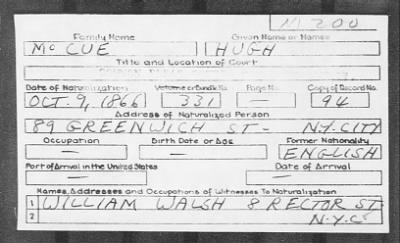 M 200
Family Name Given Name or Names
McCUE HUGH
Title and Location of Court
Date of Naturalization Volume or Bundle No. Page No. Copy of Record No.
OCT. 9, 1866 331 — 94
Address of Naturalized Person
89 GREENWICH ST - N.Y. CITY
Occupation Birth Date or Age Former Nationality
— — ENGLISH
Port of Arrival in the United States Date of Arrival
— —
Names, Addresses and Occupations of Witnesses To Naturalization
1 WILLIAM WALSH 8 RECTOR ST
2 N.Y.C.